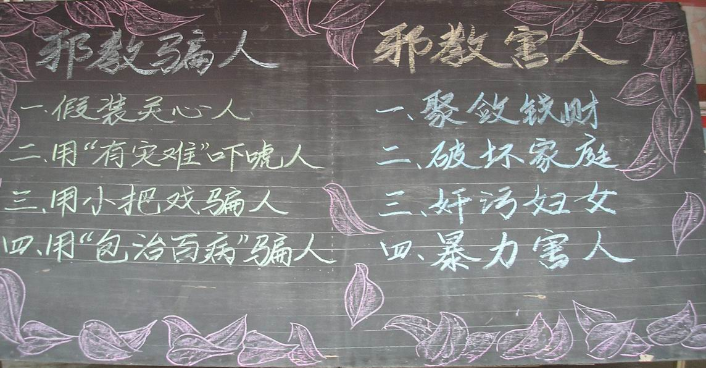 邪教骗人
一.假装灵心人
二.用“有灾难”吓唬人
三.用小把戏骗人
四.用“包治百病”骗人
邪教害人
一、聚敛钱财
二、破坏家庭
三、奸污妇女
四、暴力害人